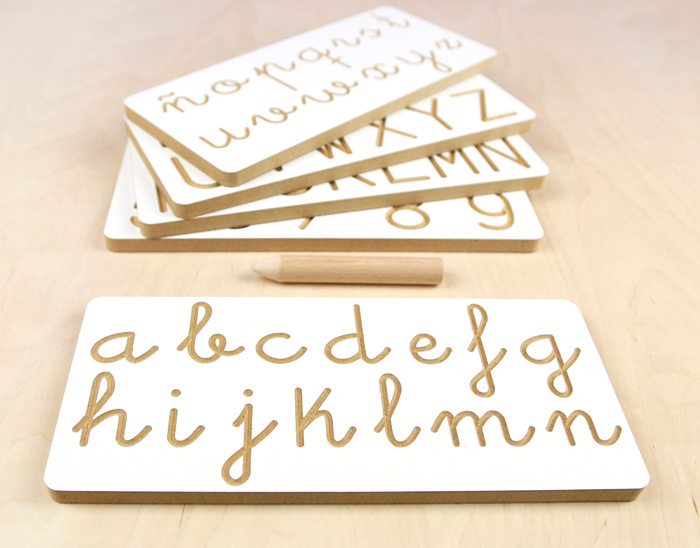 ñ o p q r s t
u v w x y z
W X Y Z
K L M N
8 9
a b c d e f g
h i j k l m n